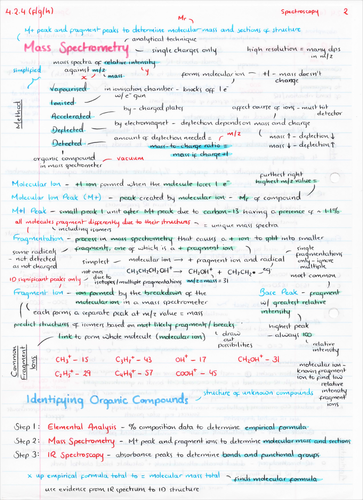 4.2.4 (f/g/h)
Spectroscopy 2
Mr
M+ peak and fragment peaks to determine molecular mass and sections of structure
analytical technique
Mass Spectrometry
single charges only
high resolution = many dps in m/z
mass spectra of relative intensity
against m/z
y
x
mass
forms molecular ion
+1 - mass doesn't change
simplified
Method
Vapourised - in ionisation chamber - knocks off 1 e⁻
Ionised - w/ e⁻ gun
Accelerated - by - charged plates
affect course of ions - must hit detector
Deflected - by electromagnet - deflection depends on mass and charge
Detected - amount of deflection needed = m/z
mass-to-charge ratio =
mass if charge +1
mass ↑ - deflection ↓
mass ↓ - deflection ↑
organic compound in mass spectrometer
vacuum
Molecular Ion - +1 ion formed when the molecule loses 1 e⁻
furthest right highest m/z value =
Molecular Ion Peak (M+) - peak created by molecular ion - Mr of compound
M+1 Peak - small peak 1 unit after M+ peak due to carbon-13 having a presence of ~1.1%
all molecules fragment differently due to their structures
including isomers
= unique mass spectra
Fragmentation - process in mass spectrometry that causes a + ion to split into smaller
fragments, one of which is a + fragment ion
some radical not detected as not charged
simplest
molecule → + fragment ion and radical
not mass
CH₃CH₂CH₂OH⁺ → CH₂OH⁺ + CH₃CH₂•
m/z = mass = 31
single fragmentations only - ignore multiple
ID significant peaks only
due to isotopes/multiple fragmentations
most common
Fragment Ion - ion formed by the breakdown of the
molecular ion in a mass spectrometer
Base Peak - fragment w/ greatest relative intensity
each forms a separate peak at m/z value = mass
predict structures of isomers based on most likely fragments/breaks
link to form whole molecule (molecular ion)
draw out possibilities
highest peak - always 100
relative intensity
Common Fragment Ions
CH₃⁺ - 15
C₃H₇⁺ - 43
OH⁺ - 17
CH₂OH⁺ - 31
C₂H₅⁺ - 29
C₄H₉⁺ - 57
COOH⁺ - 45
Identifying Organic Compounds
structure of unknown compounds
Step 1: Elemental Analysis - % composition data to determine empirical formula
Step 2: Mass Spectrometry - M+ peak and fragment ions to determine molecular mass and sections
Step 3: IR Spectroscopy - absorbance peaks to determine bonds and functional groups
x up empirical formula total to = molecular mass total
finds molecular formula
use evidence from IR spectrum to ID structure